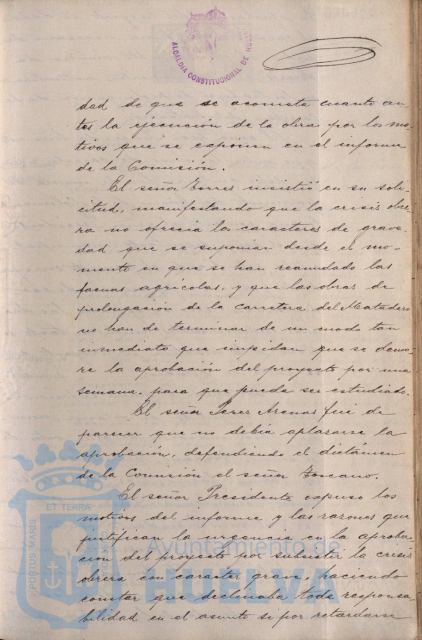 ALCALDIA CONSTITUCIONAL DE HU
dad de que se acometa cuanto an-
tes la ejecución de la obra por los mo-
tivos que se exponen en el informe
de la Comisión.
El señor Torres insistió en su soli-
citud, manifestando que la crisis obre-
ra no ofrecia los caracteres de grave-
dad que se suponian desde el mo-
mento en que se han reanudado las
faenas agricolas, y que las obras de
prolongación de la carretera del Matadero
no han de terminar de un modo tan
inmediato que impidan que se demo-
re la aprobación del proyecto por una
semana, para que pueda ser estudiado.
El señor Perez Arenas fué de
parecer que no debia aplazarse la
aprobación, defendiendo el dictámen
de la Comisión el señor Toscano.
El señor Presidente expuso los
motivos del informe y las razones que
justifican la urgencia en la aproba-
cion del proyecto por subsistir la crisis
obrera con caracter grave, haciendo
constar que declinaba toda responsa-
bilidad en el asunto si por retardarse
PORTUS MARIS ET TERRA
Ayuntamiento de
HUELVA